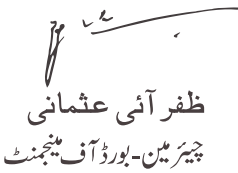 ظفر آئی عثمانی
چیئرمین-بورڈ آف مینجمنٹ